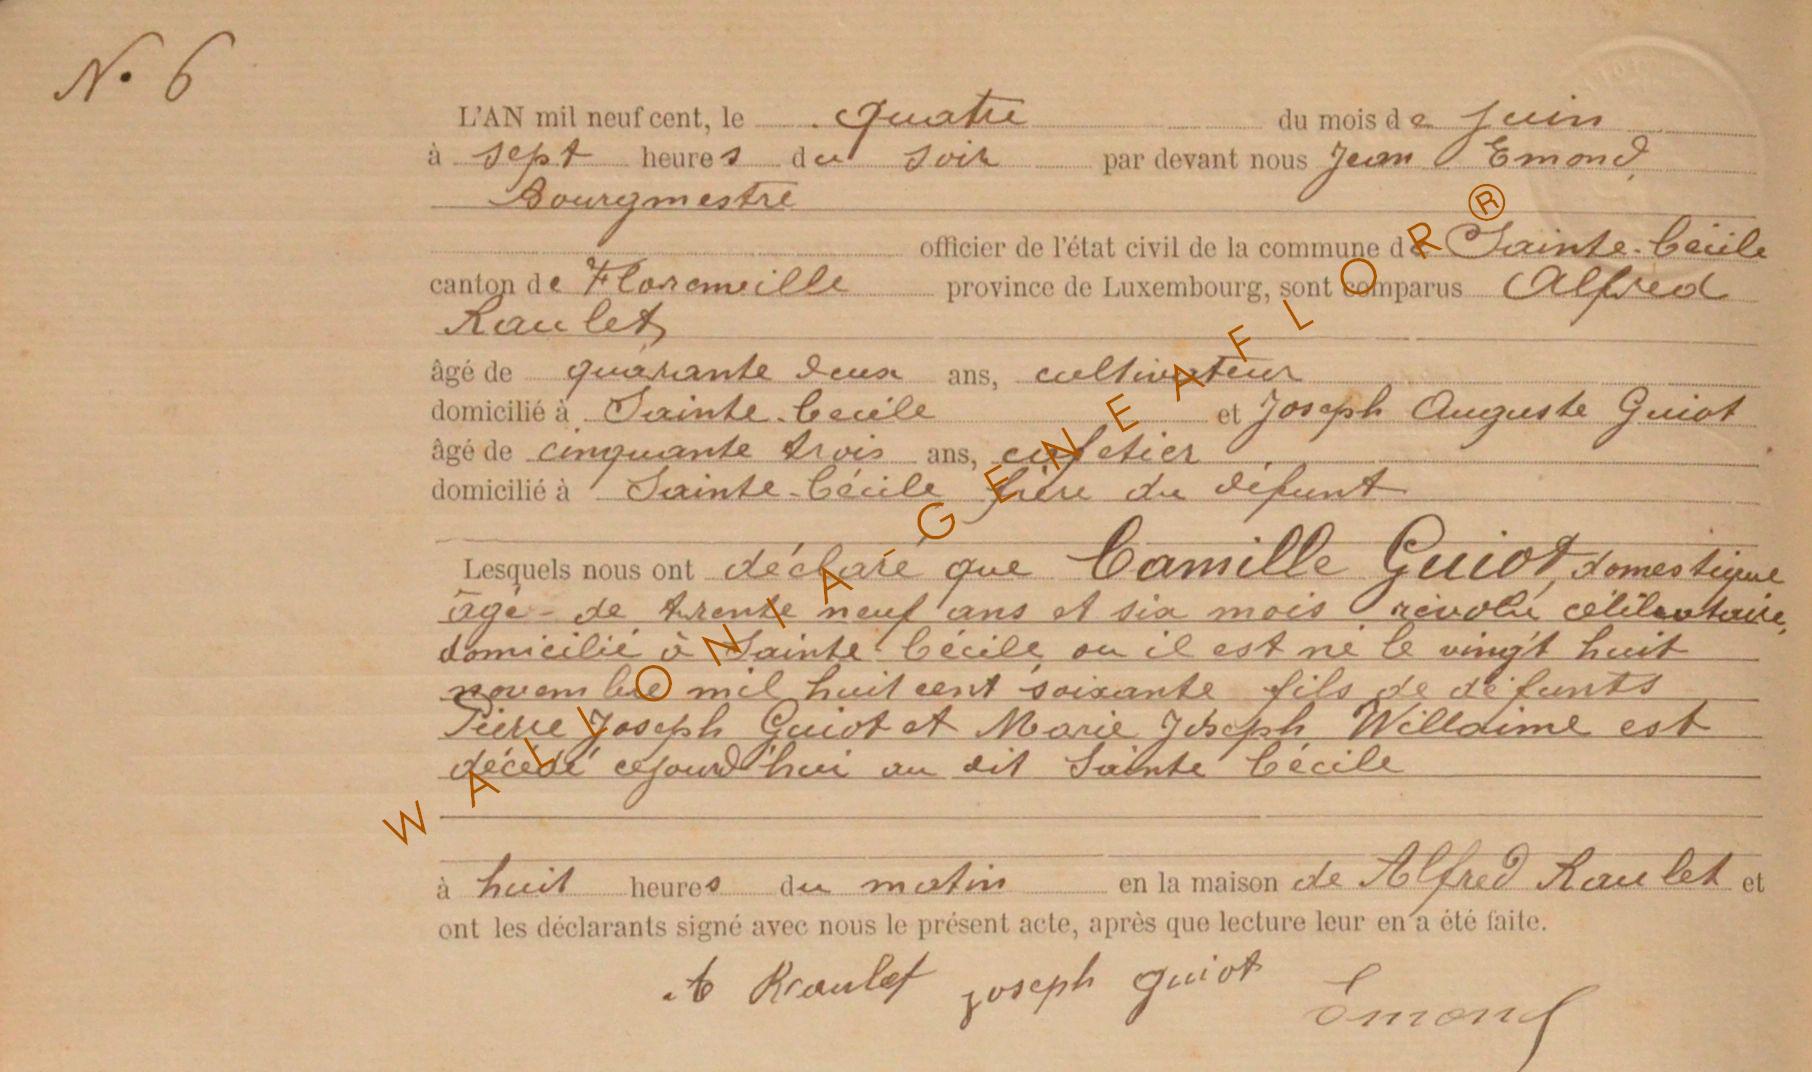 N. 6
L'AN mil neuf cent, le quatre du mois de juin
à sept heures du soir par devant nous Jean Emond,
Bourgmestre
officier de l'état civil de la commune de Sainte-Cécile
canton de Florenville province de Luxembourg, sont comparus Alfred
Raulet,
âgé de quarante deux ans, cultivateur
domicilié à Sainte-Cécile et Joseph Auguste Guiot
âgé de cinquante trois ans, cafetier
domicilié à Sainte-Cécile frère du défunt
Lesquels nous ont déclaré que Camille Guiot, domestique
âgé de trente neuf ans et six mois révolu, célibataire,
domicilié à Sainte Cécile, ou il est né le vingt huit
novembre mil huit cent soixante fils de défunts
Pierre Joseph Guiot et Marie Joseph Willaime est
décédé cejourd'hui au dit Sainte Cécile
à huit heures du matin en la maison de Alfred Raulet et
ont les déclarants signé avec nous le présent acte, après que lecture leur en a été faite.
A Raulet Joseph Guiot Emond
WALLONIA GENEAFLOR®